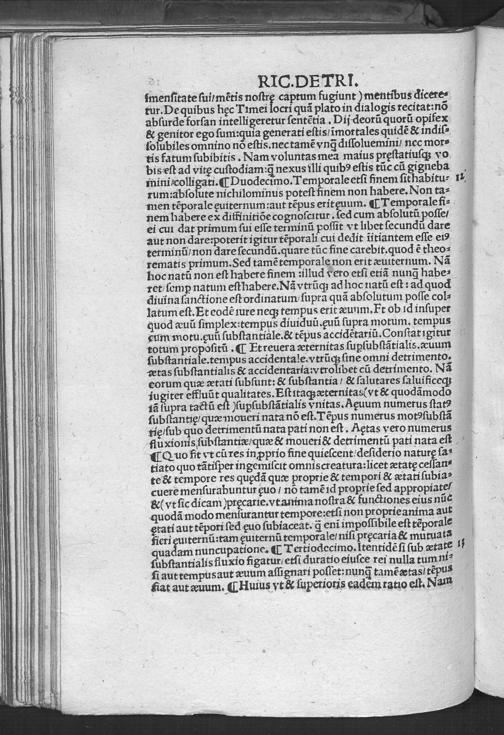 RIC.DETRI.
imensitate sui/mẽtis nostrę captum fugiunt) mentibus dicere⸗
tur. De quibus hęc Timei locri quã plato in dialogis recitat: nõ
absurde forsan intelligeretur sentẽtia. Dij deorũ quorũ opifex
& genitor ego sum: quia generati estis/ imortales quidẽ & indis⸗
solubiles omnino nõ estis. nec tamẽ vnq̃ dissoluemini/ nec mor⸗
tis fatum subibitis. Nam voluntas mea maius pręstatiusq; vo
bis est ad vitę custodiam: q̃ nexus illi quibꝰ estis tũc cũ gigneba
mini/colligati. ¶ Duodecimo. Temporale etsi finem sit habitu⸗ 12
rum: absolute nichilominus potest finem non habere. Non ta⸗
men tẽporale ęuiternum: aut tẽpus erit ęuum. ¶ Temporale fi⸗
nem habere ex diffinitiõe cognoscitur. sed cum absolutũ posse/
ei cui dat primum sui esse terminũ possit vt libet secundũ dare
aut non dare: poterit igitur tẽporali cui dedit iitiantem esse eiꝰ
terminũ/ non dare secundũ. quare tũc fine carebit. quod ẽ theo⸗
rematis primum. Sed tamẽ temporale non erit æuiternum. Nã
hoc natũ non est habere finem: illud vero etsi etiã nunq̃ habe⸗
ret/ semp natum est habere. Nã vtrũq; ad hoc natũ est: ad quod
diuina sanctione est ordinatum/ supra quã absolutum posse col⸗
latum est. Et eodẽ iure neq; tempus erit æuum. Et ob id insuper
quod æuũ simplex: tempus diuiduũ. ęuũ supra motum. tempus
cum motu. ęuũ substantiale: & tẽpus accidẽtariũ. Constat igitur
totum propositũ. ¶ Et reuera æternitas supsubstãtialis. æuum
substantiale. tempus accidentale. vtrũq; sine omni detrimento.
ætas substantialis & accidentaria: vtrolibet cũ detrimento. Nã
eorum quæ ætati subsunt: & substantia/ & salutares saluificeq;
iugiter effluũt qualitates. Est itaq; æternitas (vt & quodãmodo
iã supra tactũ est) supsubstãtialis vnitas. Aęuum numerus statꝰ
substantię/ quæ moueri nata nõ est. Tẽpus numerus motꝰ substã
tię/ sub quo detrimentũ nata pati non est. Aętas vero numerus
fluxionis substantiæ/ quæ & moueri & detrimentũ pati nata est
¶ Quo fit vt cũ res in proprio fine quiescent/ desiderio naturę sa⸗
tiato quo tãtisper ingemiscit omnis creatura: licet ætatę cessan⸗
te & tempore res quędã quæ proprie & tempori & ætati subia⸗
cuere mensurabuntur ęuo/ nõ tamẽ id proprie sed appropiate/
&(vt sic dicam) pręcarie. vt anima nostra & functiones eius nũc
quodã modo mensurantur tempore: etsi non proprie anima aut
ętati aut tẽpori sed ęuo subiaceat. q̃ eni impossibile est tẽporale
fieri ęuiternũ: tam ęuiternũ temporale/ nisi pręcaria & mutuata
quadam nuncupatione. ¶ Tertiodecimo. Itentidẽ si sub ætate 13
substantialis fluxio figatur/ etsi duratio eiusce rei nulla tum ni⸗
si aut tempus aut æuum assignari posset: nunq̃ tamẽ ætas/ tẽpus
fiat aut æuum. ¶ Huius vt & superioris eadem ratio est. Nam